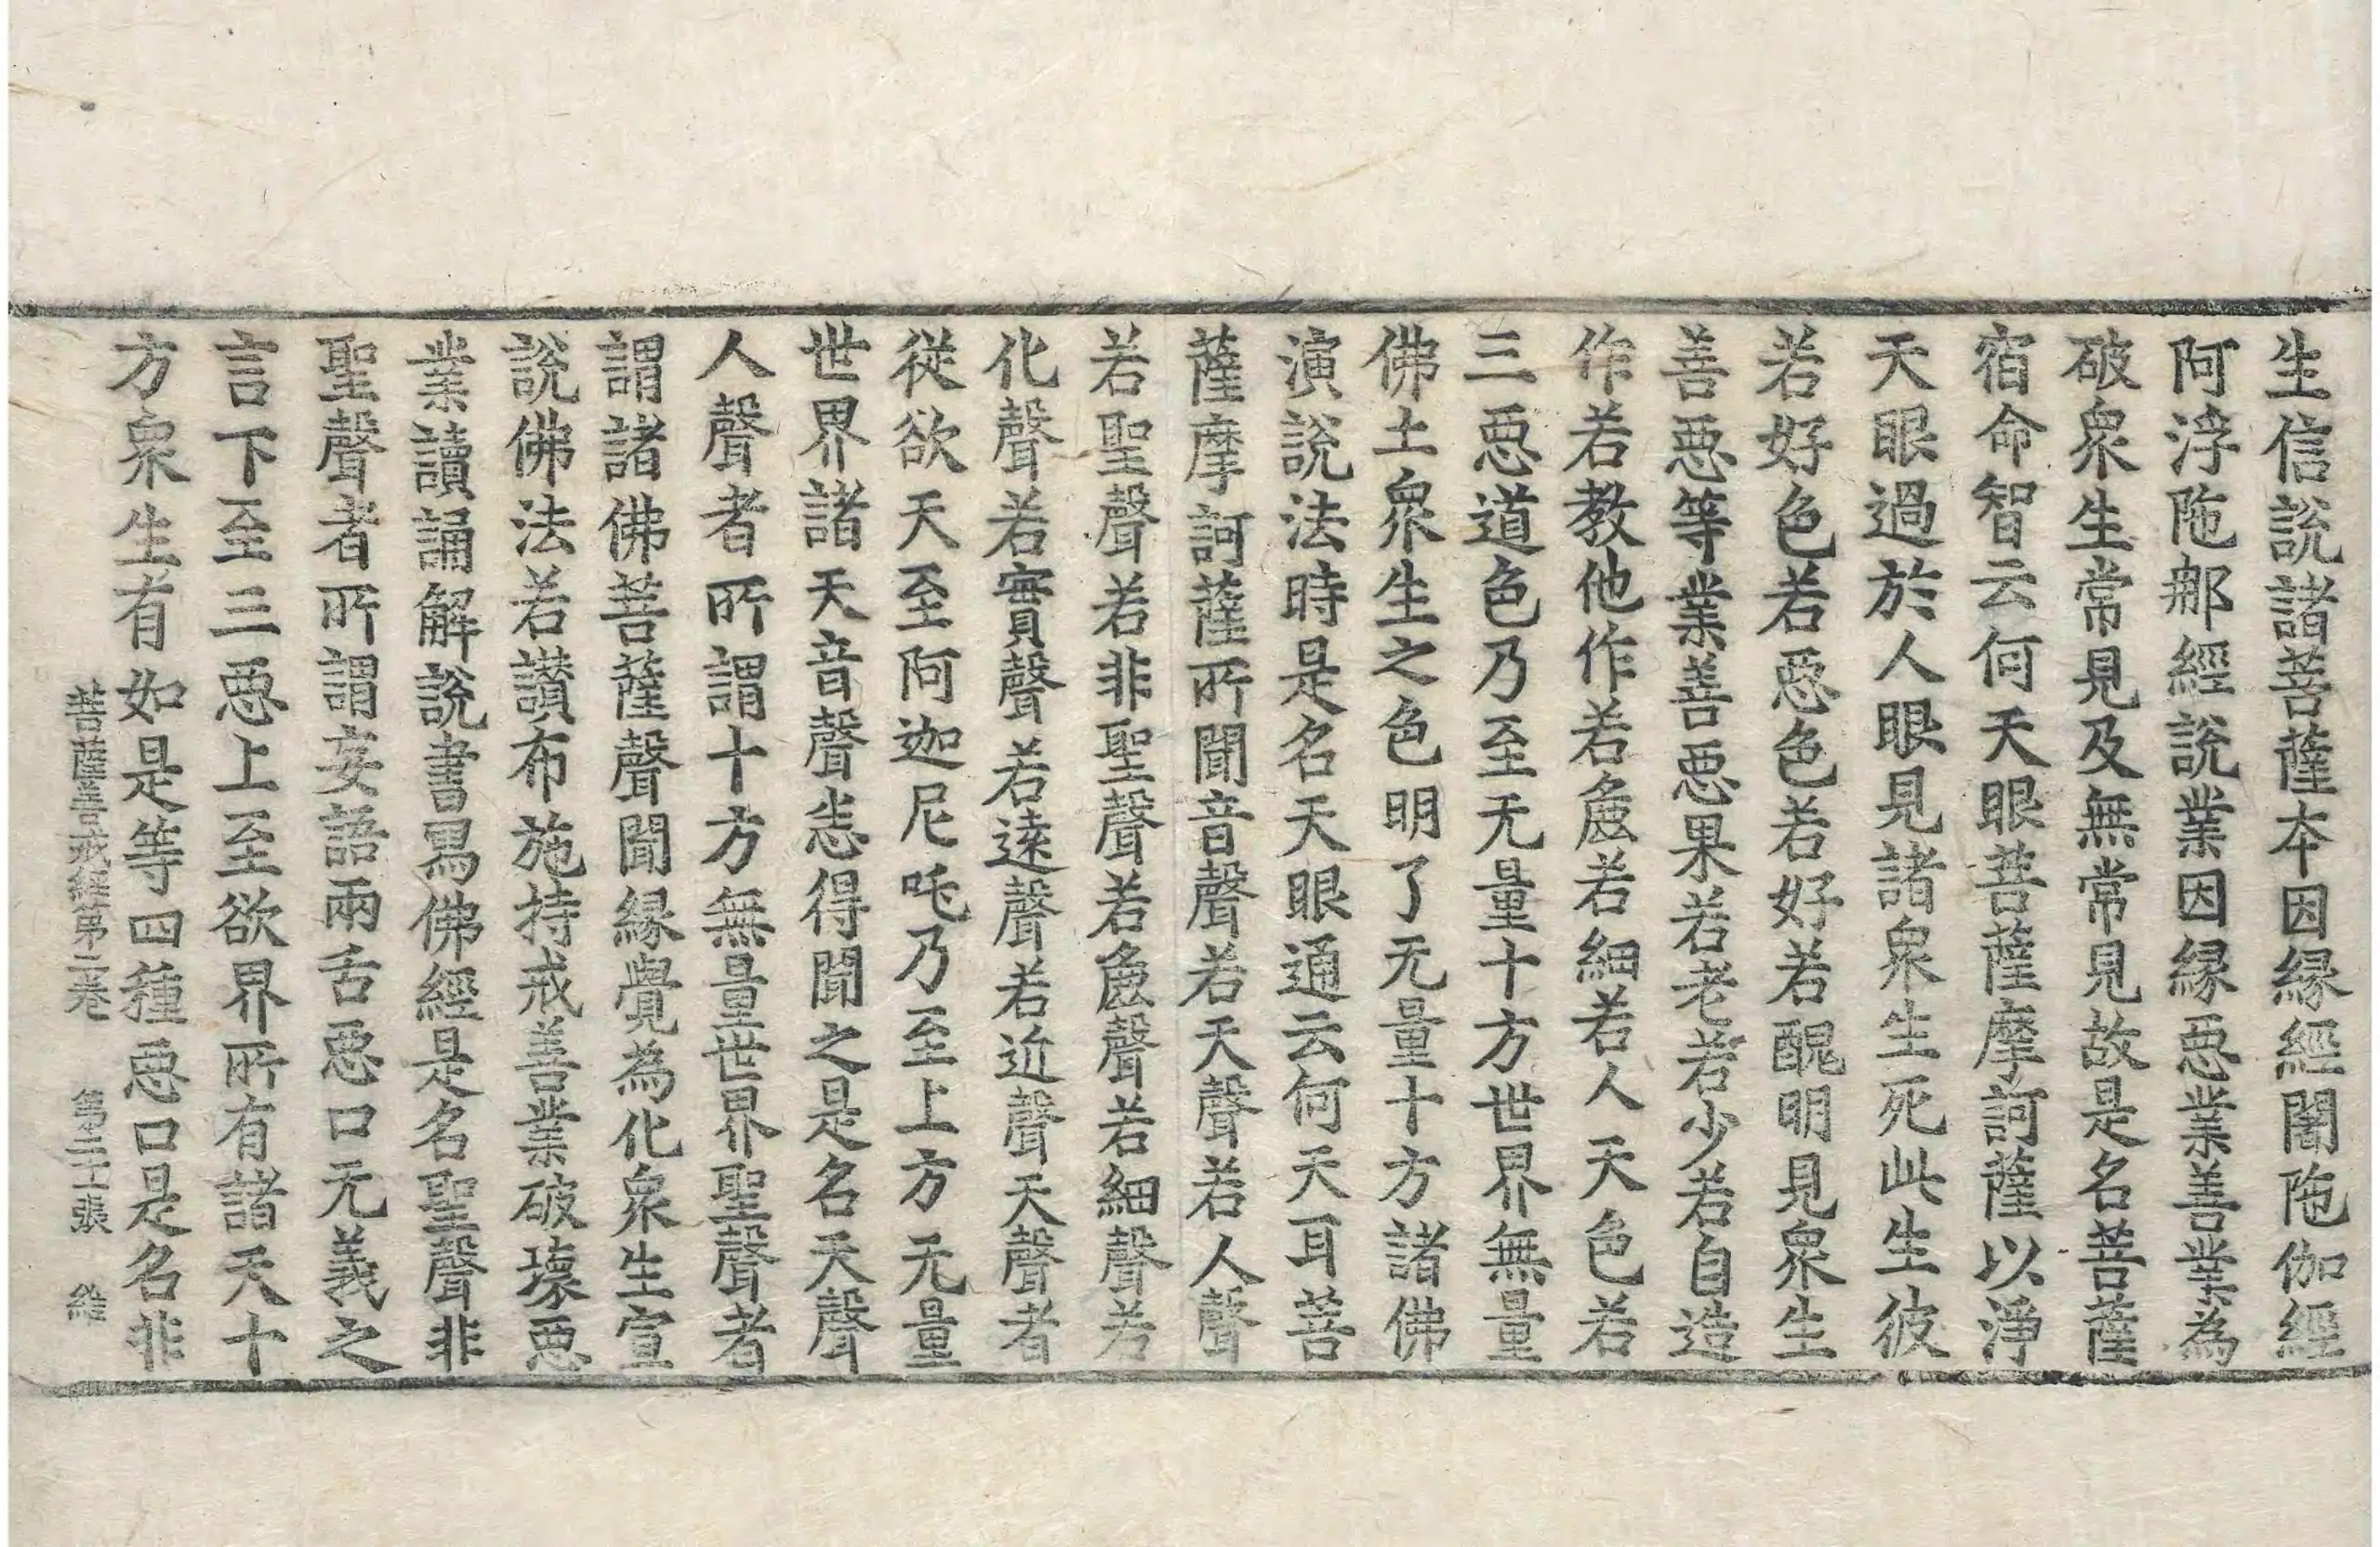 生信說諸菩薩本因縁經闍陁伽經
阿浮陁𨚗經說業因縁惡業善業為
破衆生常見及無常見故是名菩薩
宿命智云何天眼菩薩摩訶薩以淨
天眼過於人眼見諸衆生死此生彼
若好色若惡色若好若醜明見衆生
善惡等業善惡果若老若少若自造
作若教他作若麁若細若人天色若
三惡道色乃至无量十方世界無量
佛土衆生之色明了无量十方諸佛
演說法時是名天眼通云何天耳菩
薩摩訶薩所聞音聲若天聲若人聲
若聖聲若非聖聲若麁聲若細聲若
化聲若實聲若遠聲若近聲天聲者
從欲天至阿迦尼吒乃至上方无量
世界諸天音聲悉得聞之是名天聲
人聲者所謂十方無量世界聖聲者
謂諸佛菩薩聲聞縁覺為化衆生宣
說佛法若讃布施持戒善業破壞惡
業讀誦解說書寫佛經是名聖聲非
聖聲者所謂妄語兩舌惡口无義之
言下至三惡上至欲界所有諸天十
方衆生有如是等四種惡口是名非
菩薩善戒經第二卷　第二十張　維